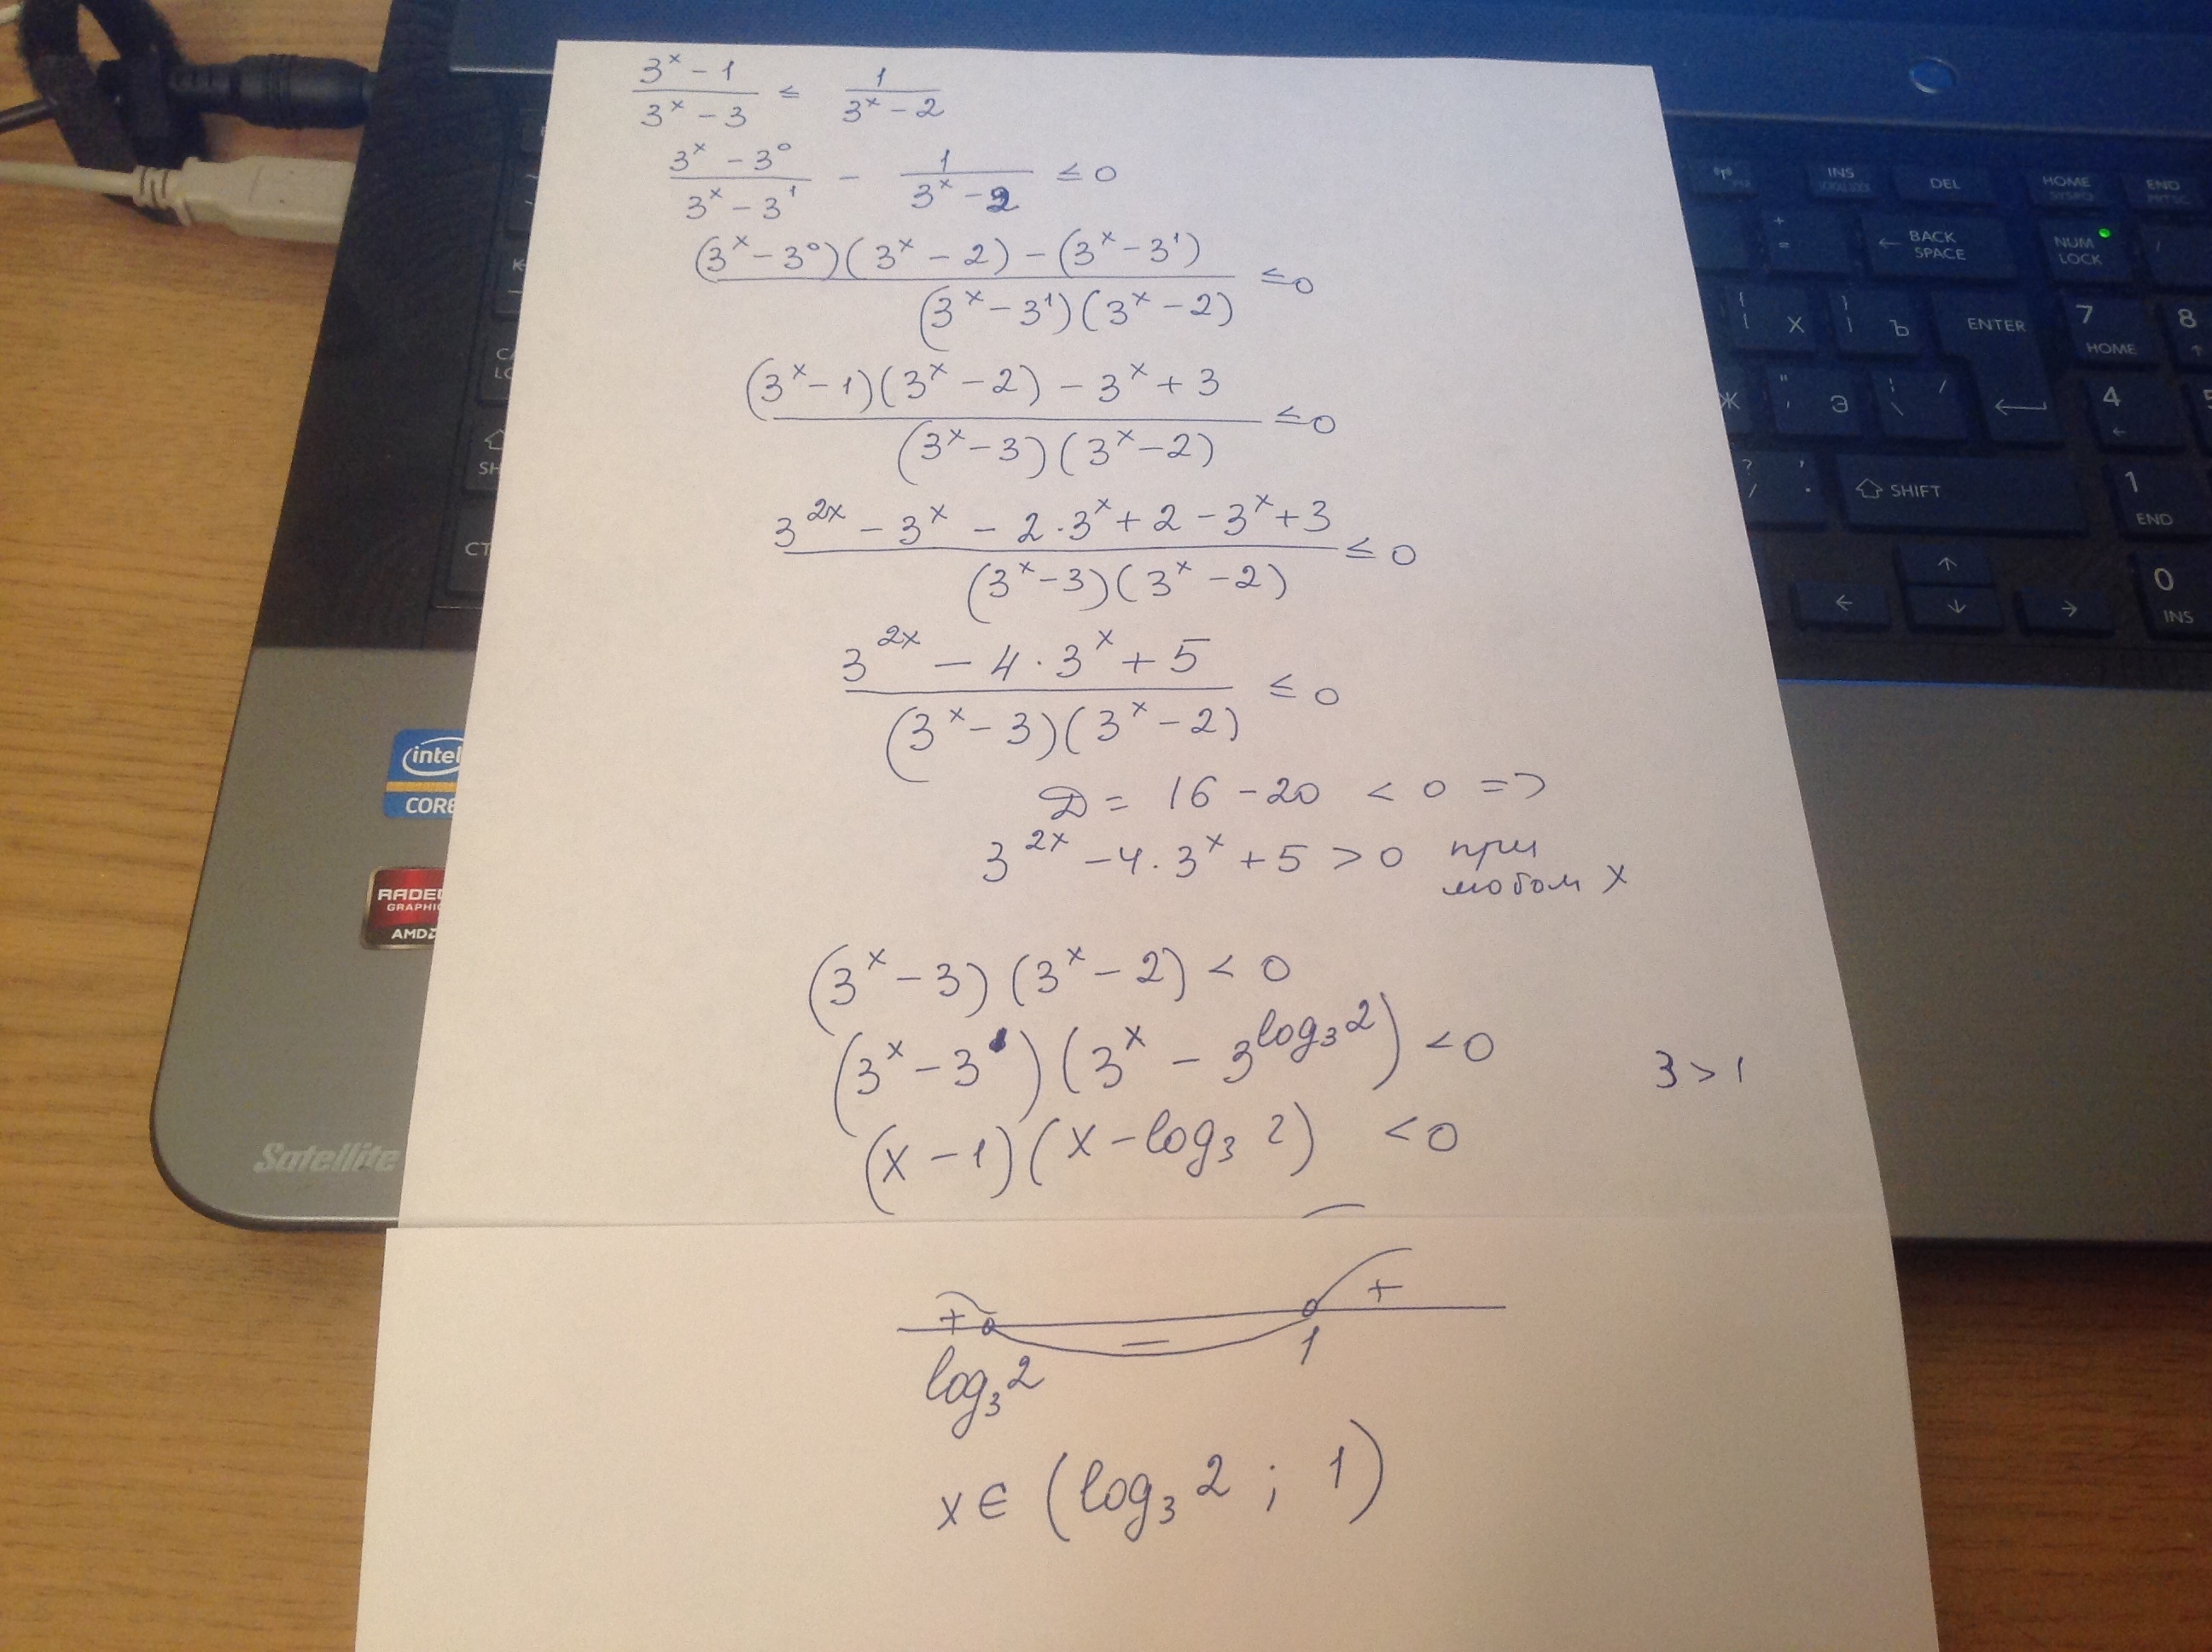 (3^x − 1)/(3^x − 3) ≤ 1/(3^x − 2)
(3^x − 3^0)/(3^x − 3^1) − 1/(3^x − 2) ≤ 0
((3^x − 3^0)(3^x − 2) − (3^x − 3^1))/((3^x − 3^1)(3^x − 2)) ≤ 0
((3^x − 1)(3^x − 2) − 3^x + 3)/((3^x − 3)(3^x − 2)) ≤ 0
(3^2x − 3^x − 2 · 3^x + 2 − 3^x + 3)/((3^x − 3)(3^x − 2)) ≤ 0
(3^2x − 4 · 3^x + 5)/((3^x − 3)(3^x − 2)) ≤ 0
D = 16 − 20 < 0 =>
3^2x − 4 · 3^x + 5 > 0 при
любом x
(3^x − 3)(3^x − 2) < 0
(3^x − 3^1)(3^x − 3^(log₃ 2)) < 0
3 > 1
(x − 1)(x − log₃ 2) < 0
+ − +
log₃ 2 1
x ∈ (log₃ 2 ; 1)
intel
CORE
RADE
GRAPHIC
AMD
Satellite
INS
DEL
HOME
END
+
=
← BACK
SPACE
NUM
LOCK
/
Х
Ъ
ENTER
7
HOME
8
↑
Ж
Э
\ /
4
←
?
/
SHIFT
1
END
↑
← ↓ →
0
INS
CT